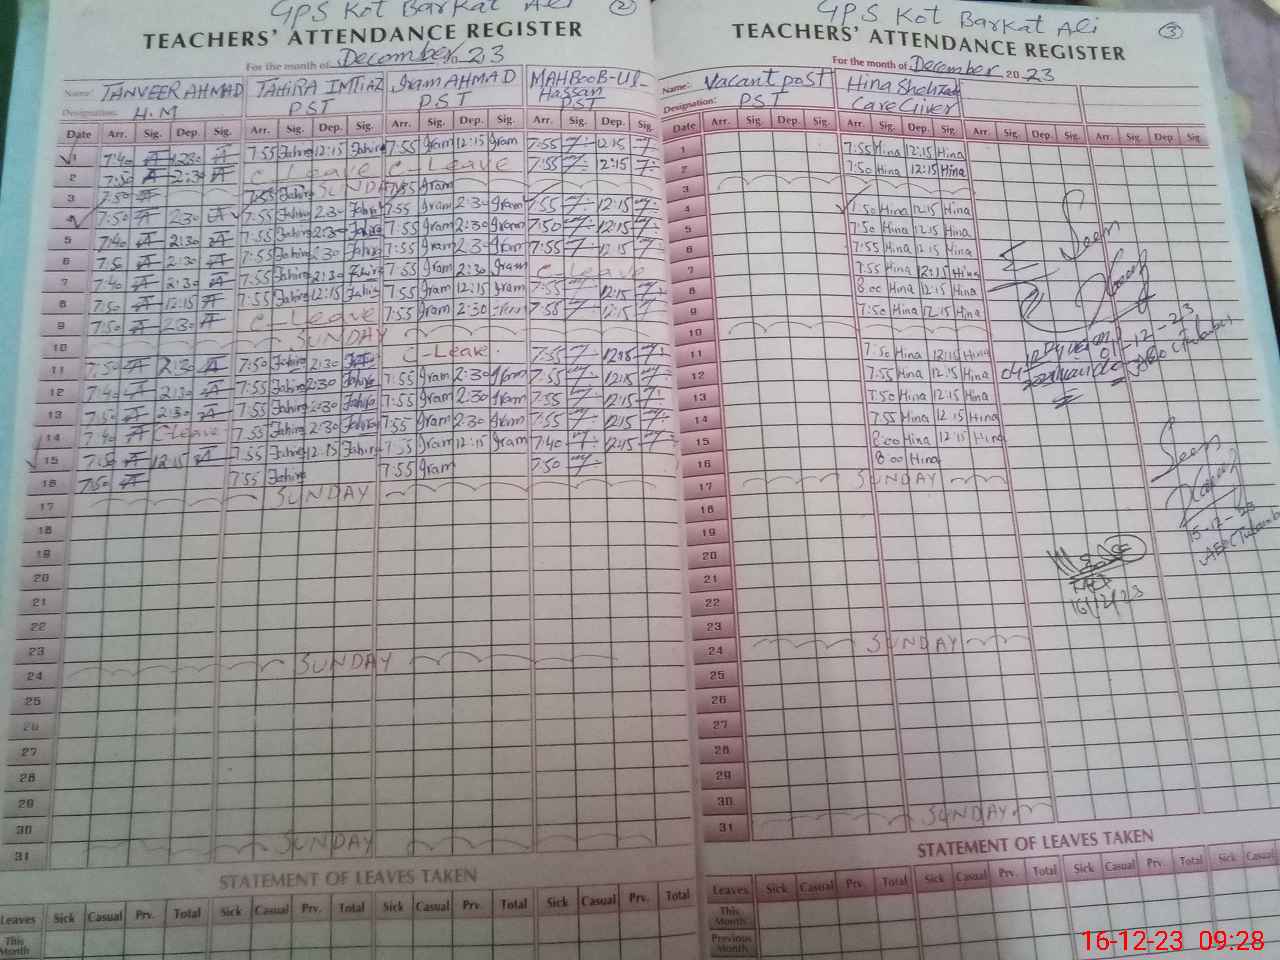 GPS Kot Barkat Ali 2
TEACHERS' ATTENDANCE REGISTER
For the month of December 2023
Name: TANVEER AHMAD TAHIRA IMTIAZ Iram AHMAD MAHBOOB-UL-Hassan
Designation: H.M PST PST PST
Date Arr. Sig. Dep. Sig. Arr. Sig. Dep. Sig. Arr. Sig. Dep. Sig. Arr. Sig. Dep. Sig.
1 7:40 12:30 7:55 Tahira 12:15 Tahira 7:55 Iram 12:15 Iram 7:55 12:15
2 7:50 2:30 C-Leave C-Leave 7:55 12:15
3 7:50 7:55 Tahira SUNDAY 7:55 Iram
4 7:50 2:30 7:55 Tahira 2:30 Tahira 7:55 Iram 2:30 Iram 7:55 12:15
5 7:40 2:30 7:55 Tahira 2:30 Tahira 7:55 Iram 2:30 Iram 7:50 12:15
6 7:50 2:30 7:55 Tahira 2:30 Tahira 7:55 Iram 2:30 Iram 7:55 12:15
7 7:40 2:30 7:55 Tahira 2:30 Tahira 7:55 Iram 2:30 Iram C-Leave
8 7:50 12:15 7:55 Tahira 12:15 Tahira 7:55 Iram 12:15 Iram 7:55 12:15
9 7:50 2:30 C-Leave 7:55 Iram 2:30 Iram 7:55 12:15
10 SUNDAY
11 7:50 2:30 7:50 Tahira 2:30 C-Leave 7:55
12 7:40 2:30 7:55 Tahira 2:30 Tahira 7:55 Iram 2:30 Iram 7:55 12:15
13 7:50 2:30 7:55 Tahira 2:30 Tahira 7:55 Iram 2:30 Iram 7:55 12:15
14 7:40 C-Leave 7:55 Tahira 2:30 Tahira 7:55 Iram 2:30 Iram 7:55 12:15
15 7:50 12:15 7:55 Tahira 12:15 Tahira 7:55 Iram 12:15 Iram 7:40
16 7:50 7:55 Tahira 7:55 Iram 7:50
17 SUNDAY
18
19
20
21
22
23
24 SUNDAY
25
26
27
28
29
30
31 SUNDAY
STATEMENT OF LEAVES TAKEN
Leaves Sick Casual Prv. Total Sick Casual Prv. Total Sick Casual Prv. Total Sick Casual Prv. Total
This Month
GPS Kot Barkat Ali 3
TEACHERS' ATTENDANCE REGISTER
For the month of December 2023
Name: Vacant post Hina Shehzad
Designation: PST Care Giver
Date Arr. Sig. Dep. Sig. Arr. Sig. Dep. Sig. Arr. Sig. Dep. Sig. Arr. Sig. Dep. Sig.
1 7:55 Hina 12:15 Hina
2 7:50 Hina 12:15 Hina
3
4 7:50 Hina 12:15 Hina
5 7:50 Hina 12:15 Hina
6 7:55 Hina 12:15 Hina
7 7:55 Hina 12:15 Hina
8 8:00 Hina 12:15 Hina
9 7:50 Hina 12:15 Hina
10
11 7:50 Hina 12:15 Hina
12 7:55 Hina 12:15 Hina
13 7:50 Hina 12:15 Hina
14 7:55 Hina 12:15 Hina
15 8:00 Hina 12:15 Hina
16 8:00 Hina
17 SUNDAY
18
19
20
21
22
23
24 SUNDAY
25
26
27
28
29
30
31 SUNDAY
Seen
Seen
15-12-23
16/12/23
STATEMENT OF LEAVES TAKEN
Leaves Sick Casual Prv. Total Sick Casual Prv. Total Sick Casual Prv. Total Sick Casual
This Month
Previous Month
16-12-23 09:28